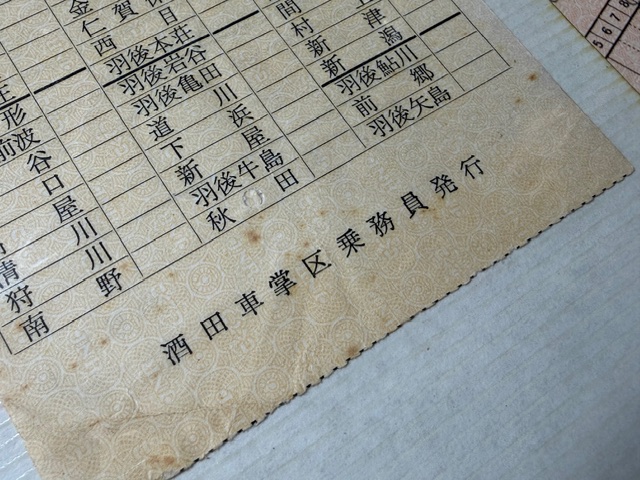 金
仁賀保
西目
羽後本荘
羽後岩谷
羽後亀田
道川
下浜
新屋
羽後牛島
秋田
間
村上
新津
新潟
羽後鮎川
前郷
羽後矢島
形
前波
谷
口
屋
川
清川
狩川
南野
酒田車掌区乗務員発行
5 6 7 8